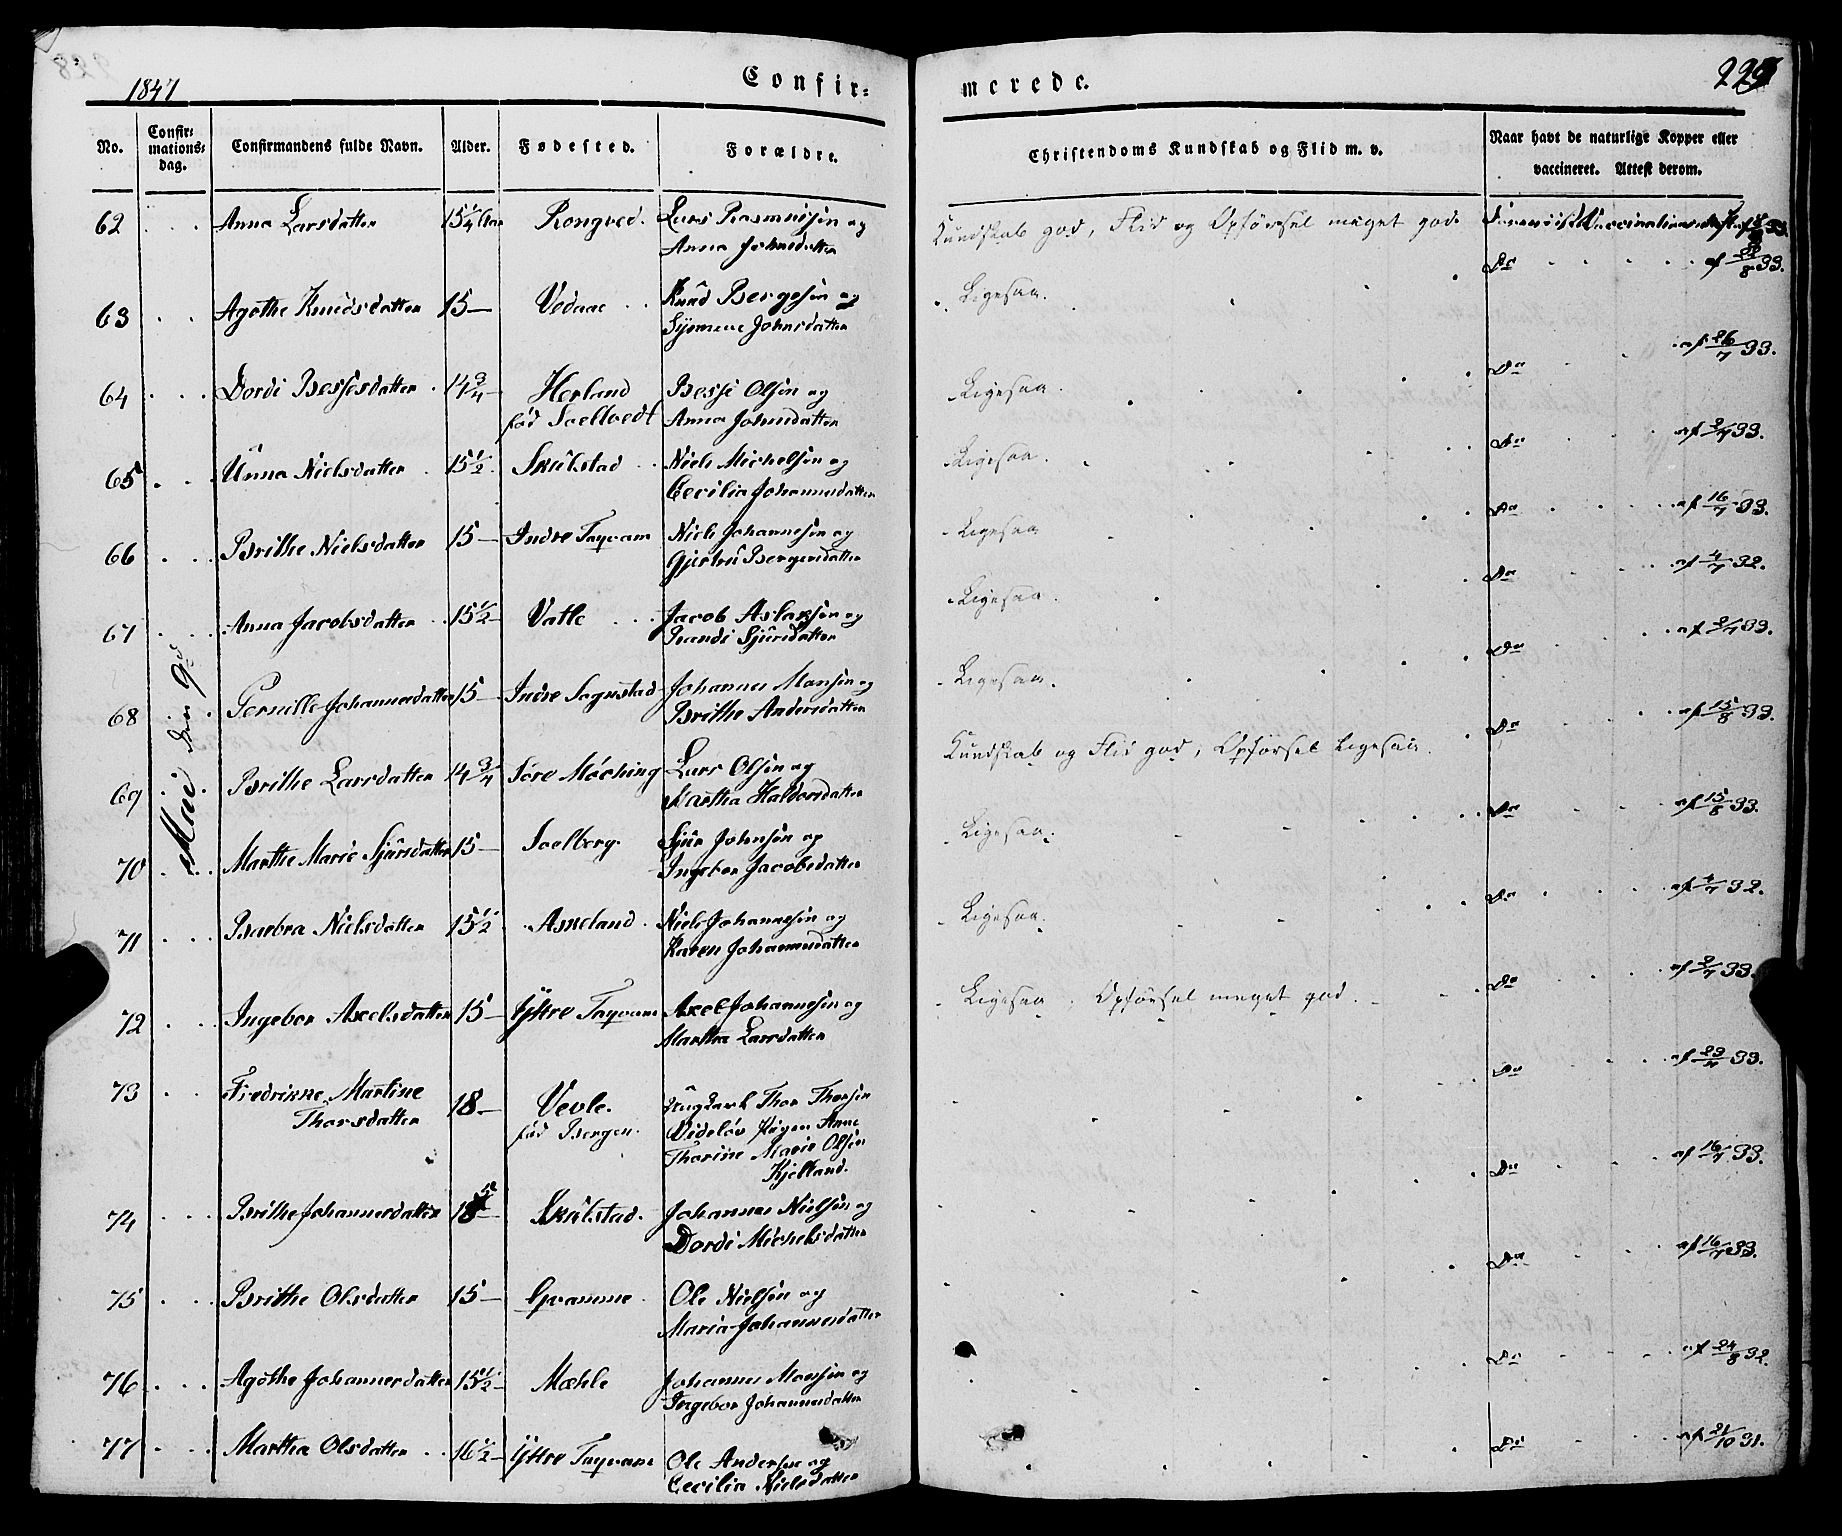 1847
Confir=
merede.
229
No.
Confir=
mations=
dag.
Confirmandens fulde Navn.
Alder.
Fødested.
Forældre.
Christendoms Kundskab og Flid m. v.
Naar havt de naturlige Kopper eller
vaccineret. Attest derom.
Mai den 9de
62 Anna Larsdatter 15 1/4 Aar Rongved. Lars Rasmussøn og
Anna Johnsdatter
Kundskab god, Flid og Opførsel meget god
Vaccinationsattest af 18/8 33.
63 Agathe Knudsdatter 15 Vedaae Knud Bergesøn og
Johnsdatter
Ligesaa. Do af 22/8 33.
64 Dordi Bessesdatter 14 3/4 Herland Besse Olsøn og
fød Soeltvedt Anna Johnsdatter
Ligesaa. Do af 26/7 33.
65 Unna Nielsdatter 15 1/2 Skulstad Niels Michelsøn og
Cecilia Johannesdatter
Ligesaa. Do af 2/7 33.
66 Brithe Nielsdatter 15 Indre Taqvam Niels Johannesøn og
Gjertru Bergersdatter
Ligesaa Do af 16/7 33.
67 Anna Jacobsdatter 15 1/2 Vatle Jacob Aslaksøn og
Randi Sjursdatter
Ligesaa. Do af 4/7 32.
68 Pernille Johannesdatter 15 Indre Sognstad Johannes Monsøn og
Brithe Andersdatter
Ligesaa. Do af 2/7 33.
69 Brithe Larsdatter 14 3/4 Søre Møching Lars Olsøn og
Martha Haldorsdatter
Kundskab og Flid god, Opførsel Ligesaa. Do af 15/8 33.
70 Marthe Marie Sjursdatter 15 Soelberg. Sjur Johnsøn og
Ingebor Jacobsdatter
Ligesaa. Do af 15/8 33.
71 Barbra Nielsdatter 15 1/2 Askeland Niels Johannesøn og
Karen Johannesdatter
Ligesaa. Do af 4/7 32.
72 Ingebor Axelsdatter 15 Ystre Taqvam Axel Johannesøn og
Martha Larsdatter
Ligesaa, Opførsel meget god. Do af 2/7 33.
73 Fredrikke Martine 18 Vevle. Thor Thorsøn
Thorsdatter fød Bergen. Pigen Anne
Thorine Marie Olsøn
Kjelland.
Do af 23/7 33.
74 Brithe Johannesdatter 15 Skulstad. Johannes Nielsøn og
Dordi Michelsdatter
Do af 16/7 33.
75 Brithe Olsdatter 15 Qvamme Ole Nielsøn og
Maria Johannesdatter
Do af 16/7 33.
76 Agathe Johannesdatter 15 1/2 Mæhle Johannes Monsøn og
Ingebor Johannesdatter
Do af 24/8 32.
77 Martha Olsdatter 16 1/2 Ystre Taqvam Ole Andersøn og
Cecilia Nielsdatter
Do af 21/10 31.